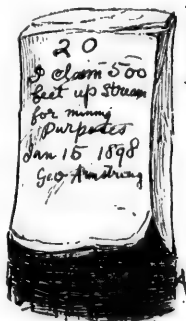 20
I claim 500
feet up stream
for mining
Purposes
Jan 15 1898
Geo Armstrong